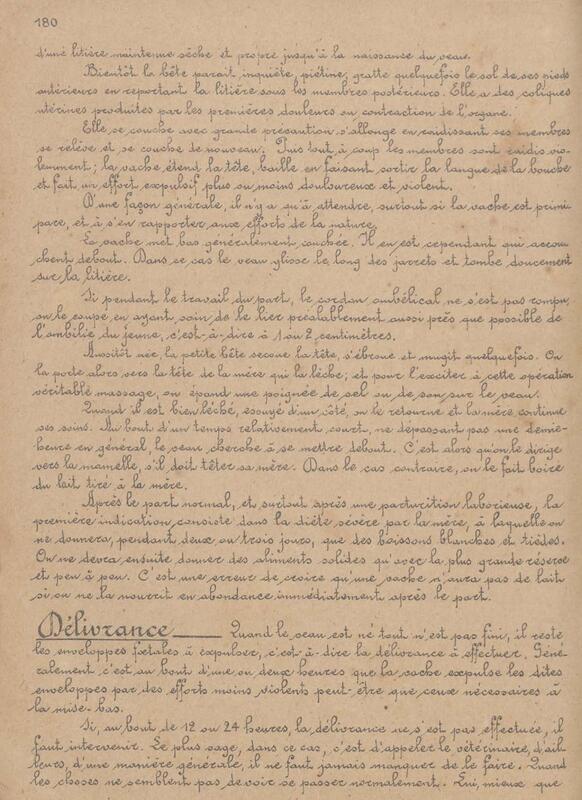 180
d'une litière maintenue sèche et propre jusqu'à la naissance du veau.
Bientôt la bête parait inquiète, piétine, gratte quelquefois le sol de ses pieds
antérieurs en reportant la litière sous les membres postérieurs. Elle a des coliques
utérines produites par les premières douleurs ou contraction de l'organe.
Elle se couche avec grande précaution s'allonge en raidissant ses membres
se relève et se couche de nouveau. Puis tout à coup les membres sont raidis vio-
lemment; la vache étend la tête, baille en faisant sortir la langue de la bouche
et fait un effort expulsif plus ou moins douloureux et violent.
D'une façon générale, il n'y a qu'à attendre, surtout si la vache est primi
pare, et à s'en rapporter aux efforts de la nature.
La vache met bas généralement couchée. Il en est cependant qui accou
chent debout. Dans ce cas le veau glisse le long des jarrets et tombe doucement
sur la litière.
Si pendant le travail du part, le cordon ombélical ne s'est pas rompu,
on le coupe en ayant soin de le lier préalablement aussi près que possible de
l'ombilic du jeune, c'est-à-dire à 1 ou 2 centimètres.
Aussitôt née la petite bête secoue la tête, s'ébroue et mugit quelquefois. On
la porte alors vers la tête de la mère qui la lèche; et pour l'exciter à cette opération
véritable massage, on épand une poignée de sel ou de son sur le veau.
Quand il est bien léché, essuyé d'un côté, on le retourne et la mère continue
ses soins. Au bout d'un temps relativement court, ne dépassant pas une demie-
heure en général, le veau cherche à se mettre debout. C'est alors qu'on le dirige
vers la mamelle, s'il doit têter sa mère. Dans le cas contraire, on le fait boire
du lait tiré à la mère.
Après le part normal, et surtout après une parturition laborieuse, la
première indication consiste dans la diète sévère par la mère, à laquelle on
ne donnera, pendant deux ou trois jours, que des boissons blanches et tièdes.
On ne devra ensuite donner des aliments solides qu'avec la plus grande réserve
et peu à peu. C'est une erreur de croire qu'une vache n'aura pas de lait
si on ne la nourrit en abondance immédiatement après le part.
Délivrance Quand le veau est né tout n'est pas fini, il reste
les enveloppes foetales à expulser, c'est-à-dire la délivrance à effectuer. Géné-
ralement c'est au bout d'une ou deux heures que la vache expulse les dites
enveloppes par des efforts moins violents peut-être que ceux nécessaires à
la mise-bas.
Si, au bout de 12 ou 24 heures, la délivrance ne s'est pas effectuée, il
faut intervenir. Le plus sage, dans ce cas, c'est d'appeler le vétérinaire, d'ail
leurs, d'une manière générale, il ne faut jamais manquer de le faire. Quand
les choses ne semblent pas devoir se passer normalement. Lui, mieux que